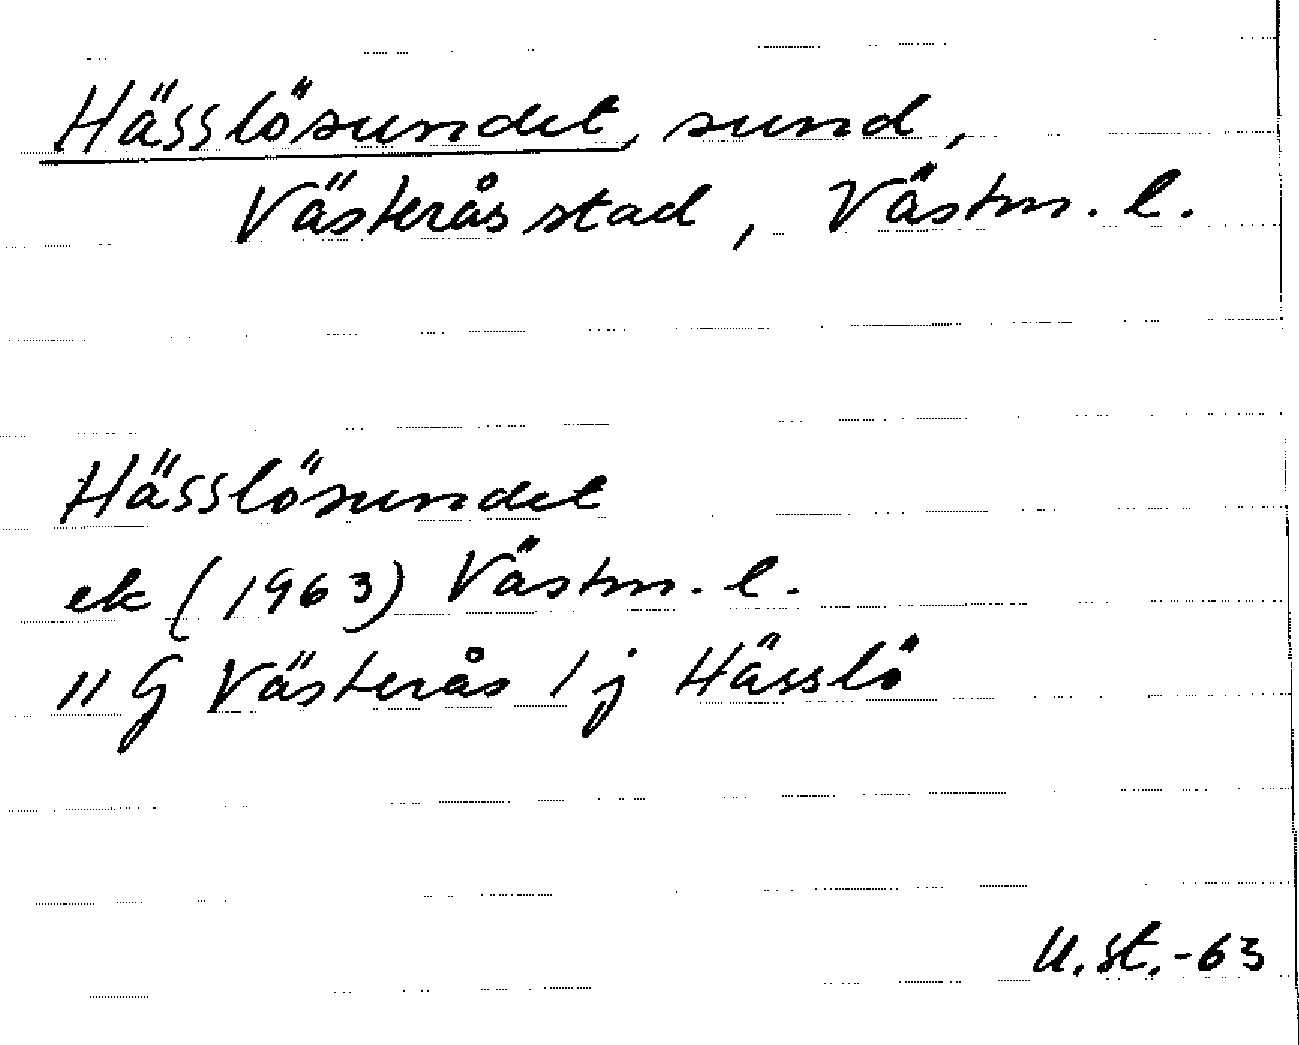 Hässlösundet, sund,
Västerås stad, Västm. l.
Hässlösundet
ek (1963) Västm. l.
11 G Västerås 1 j Hässlö
U.st.-63